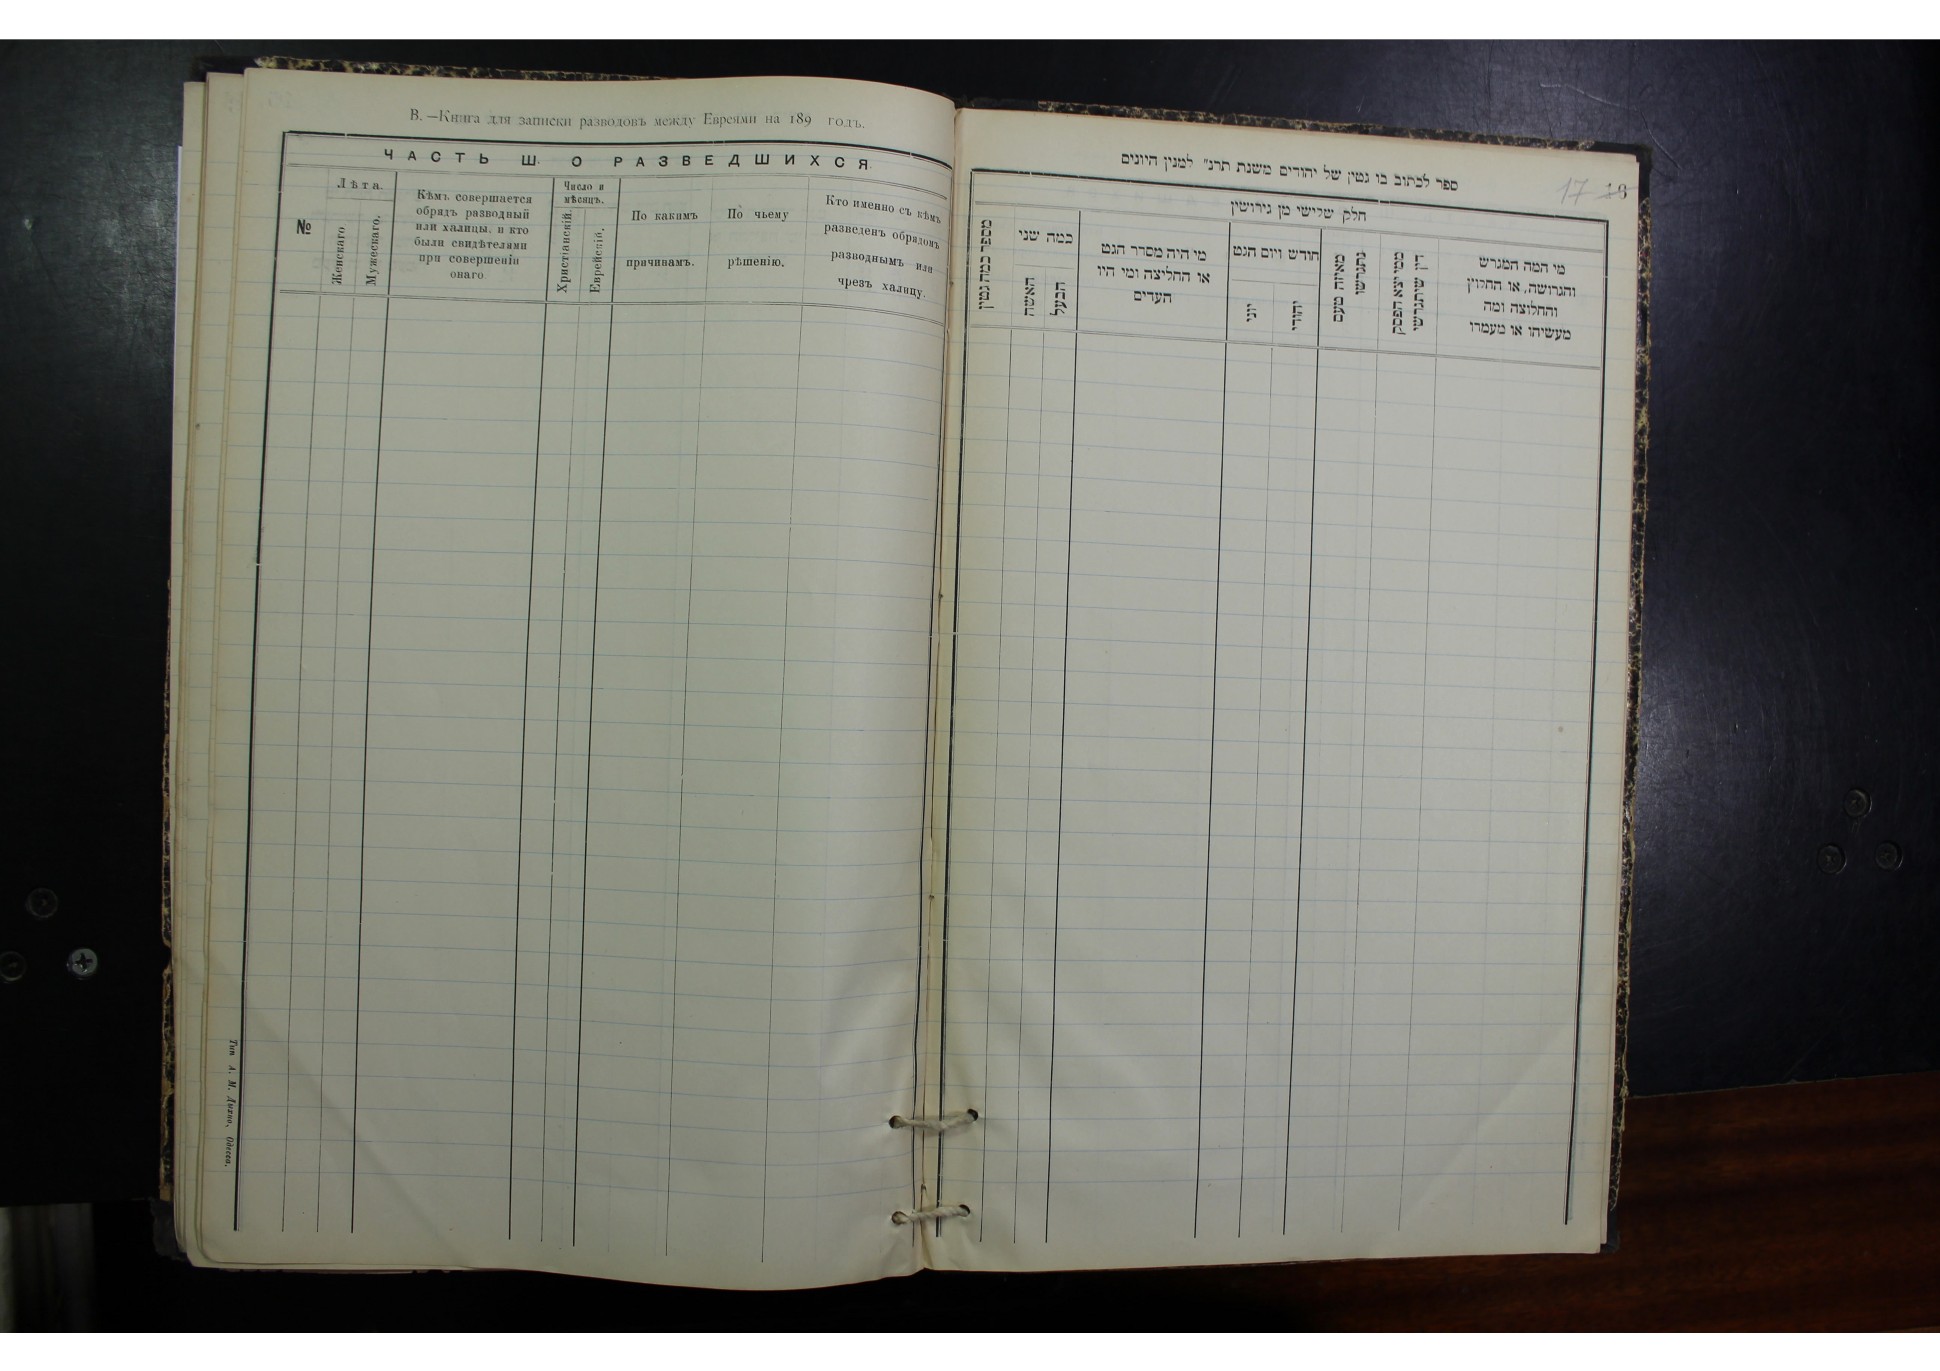 В. —Книга для записки разводовъ между Евреями на 189 годъ.
ЧАСТЬ Ш. О РАЗВЕДШИХСЯ.
№
Лѣта.
Женскаго
Мужескаго.
Кѣмъ совершается
обрядъ разводный
или халицы, и кто
были свидѣтелями
при совершеніи
онаго.
Число и
мѣсяцъ.
Христіанскій.
Еврейскій.
По какимъ
причинамъ.
По чьему
рѣшенію.
Кто именно съ кѣмъ
разведенъ обрядомъ
разводнымъ или
чрезъ халицу.
Тип. А. М. Дыхно, Одесса.
ספר לכתוב בו גטין של יהודים משנת תרנ״ למנין היונים
17 18
חלק שלישי מן גירושין
מספר כמה גטין
כמה שני
האשה
הבעל
מי היה מסדר הגט
או החליצה ומי היו
העדים
חודש ויום הגט
יוני
יהודי
מאיזה טעם
נתגרשו
ממי יצא הפסק
דין שיתגרשו
מי המה המגרש
והגרושה, או החלוץ
והחלוצה ומה
מעשיהו או מעמדו